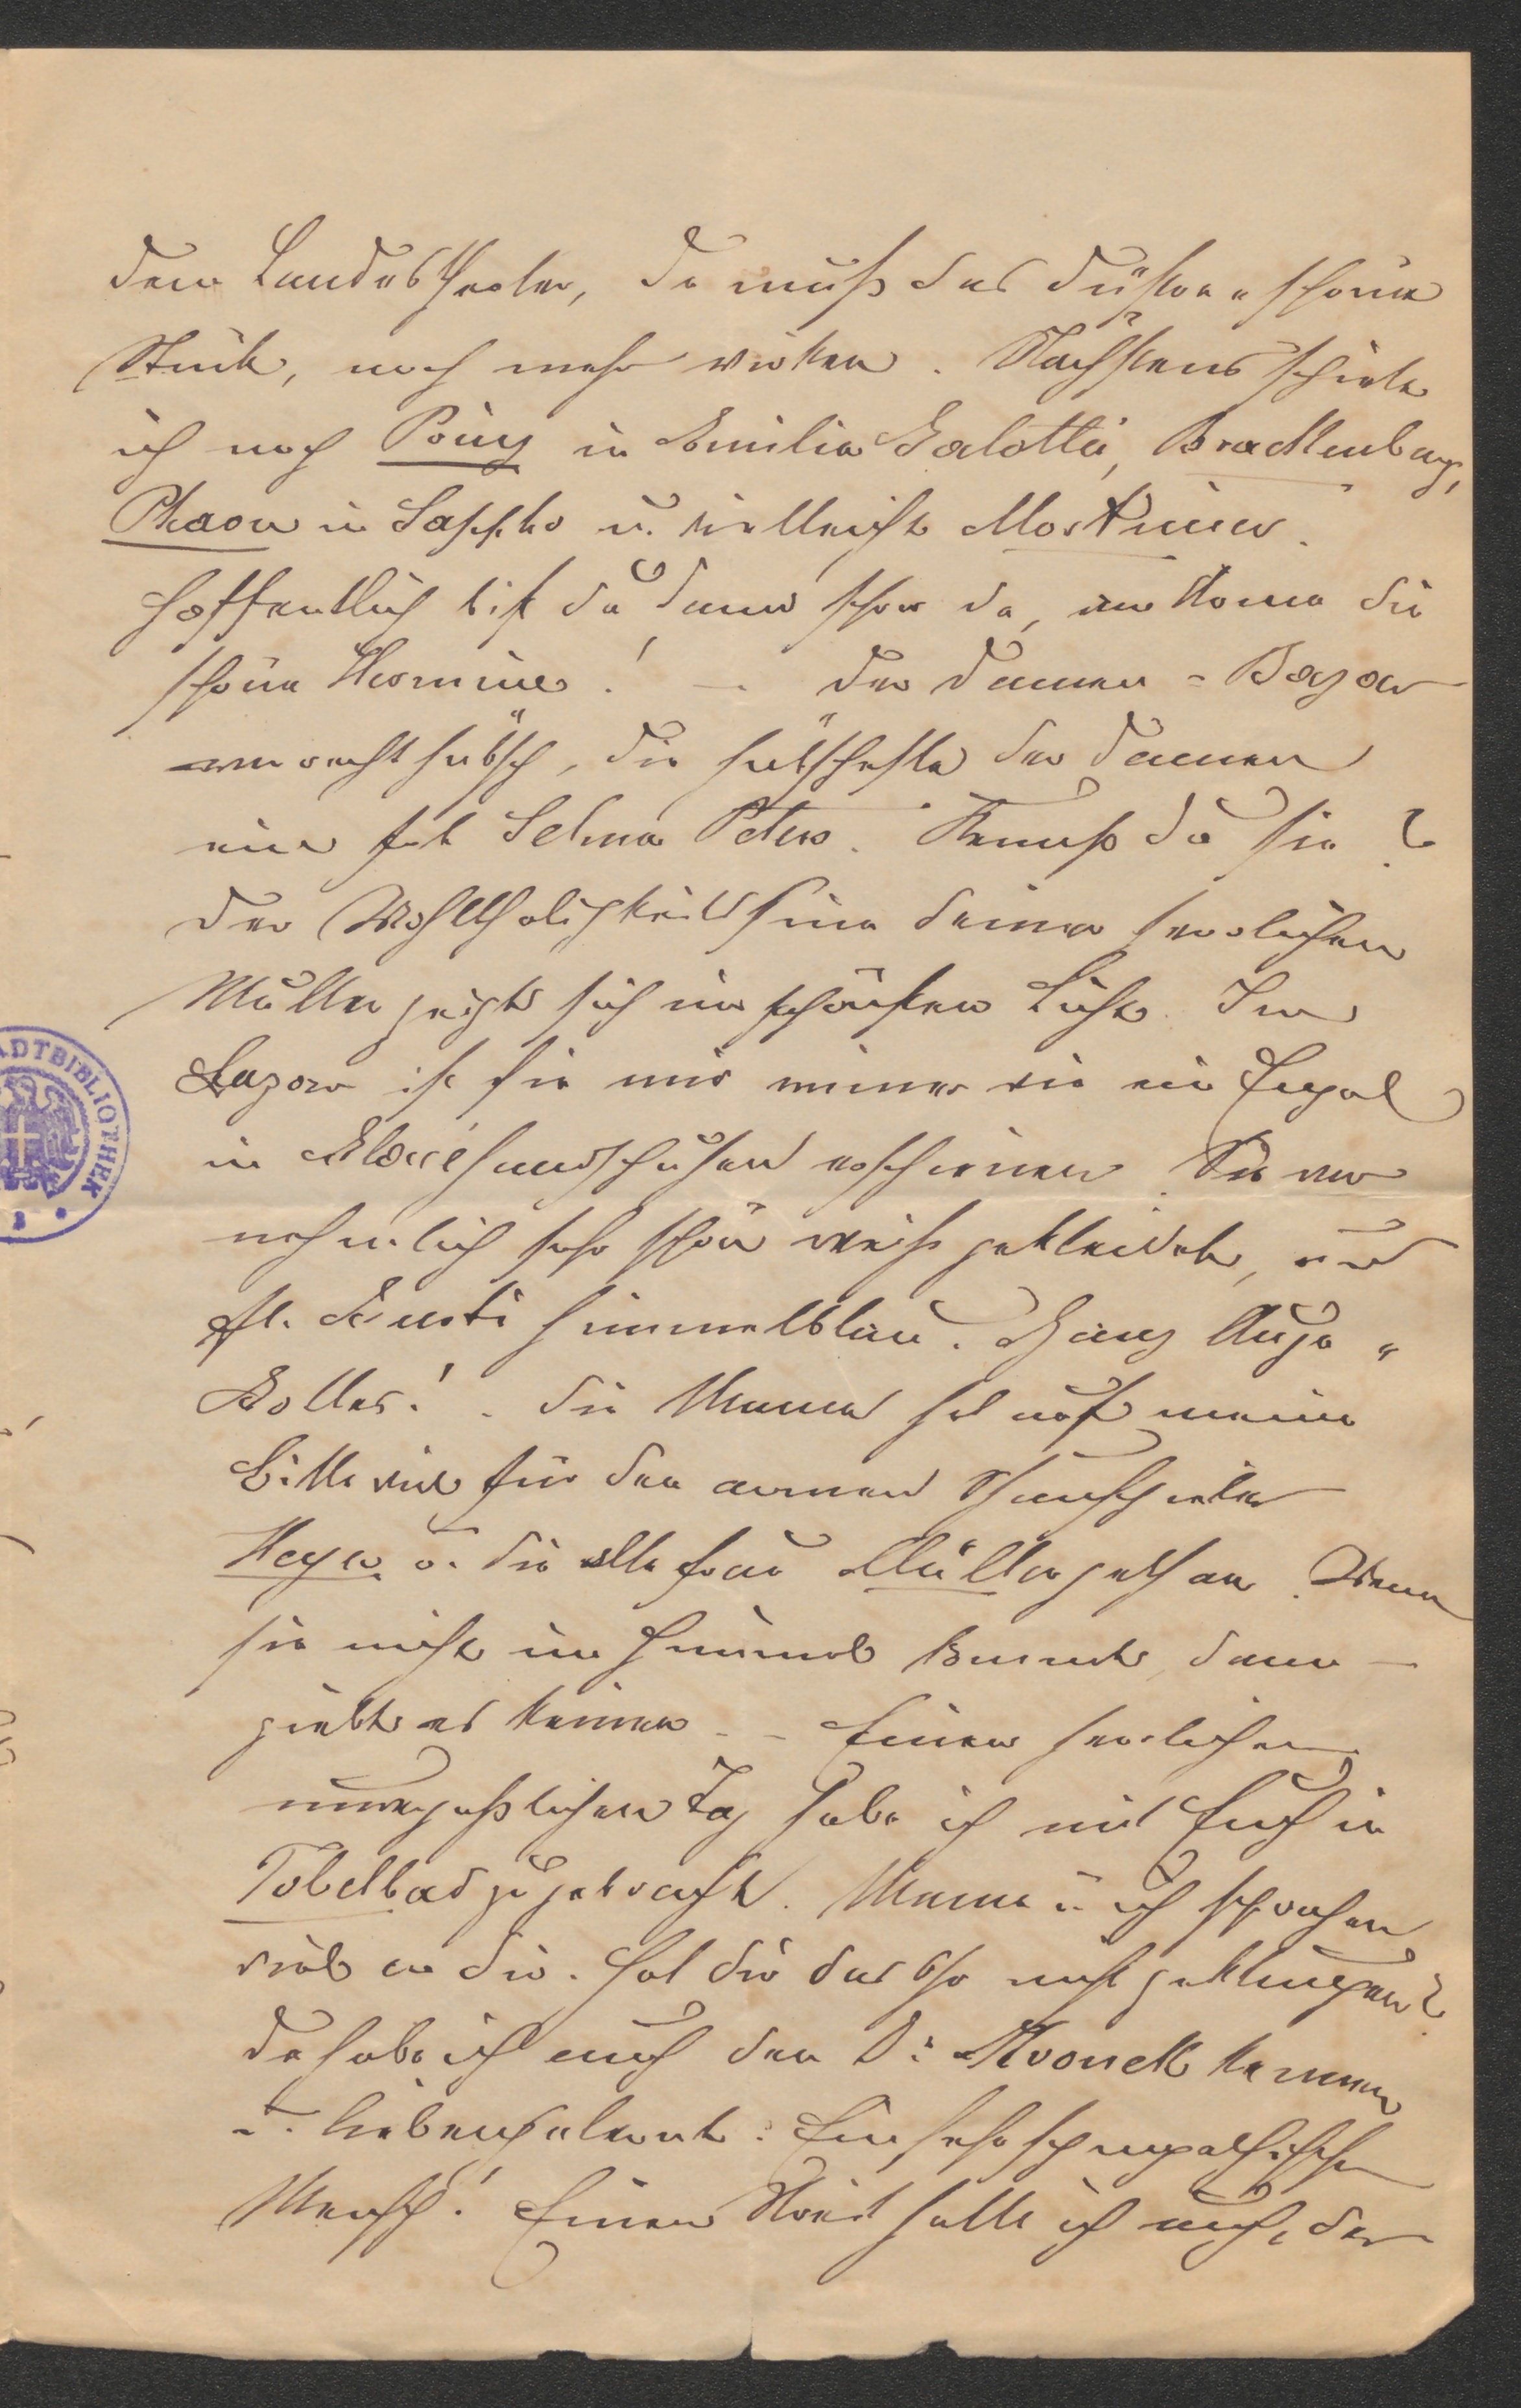 dem Landestheater, da muß das düstere schöne
Stück, noch mehr wirken. Nächstens spiele
ich noch Prinz in Emilia Galotti, Brackenburg,
Phaon in Sappho u. vielleicht Mortimer.
Hoffentlich bist du dann schon da, u. Roma die
schöne Hermine! – Der Damen-Bazar
war recht hübsch, die hübscheste der Damen
eine frl Selma Peters. Kennst du sie?
Der Wohlthätigkeitssinn deiner herrlichen
Mutter zeigte sich im schönsten Licht. Im
Bazar ist sie mir immer wie ein Engel
in Glacéhandschuhen erschienen. Sie war
nehmlich sehr schön weiß gekleidet, und
frl. Gusti himmelblau. Ganz Auge
Gottes! Die Mama hat auf meine
Bitte viel für den armen Schauspieler
Heyer u. die alte Frau Müller gethan. Wenn
sie nicht in Himmel kommt, dann –
giebt es keinen. – Einen herrlichen
unvergeßlichen Tag habe ich mit Euch in
Tobelbad zugebracht. Mama u. ich sprachen
viel von dir. Hat dir das Ohr nicht geklungen?
Da habe ich auch den Dr: kennen
u. lieben gelernt: Ein sehr sympathischer
Mensch! Einen Streit hatte ich auch, der
STADTBIBLIOTHEK